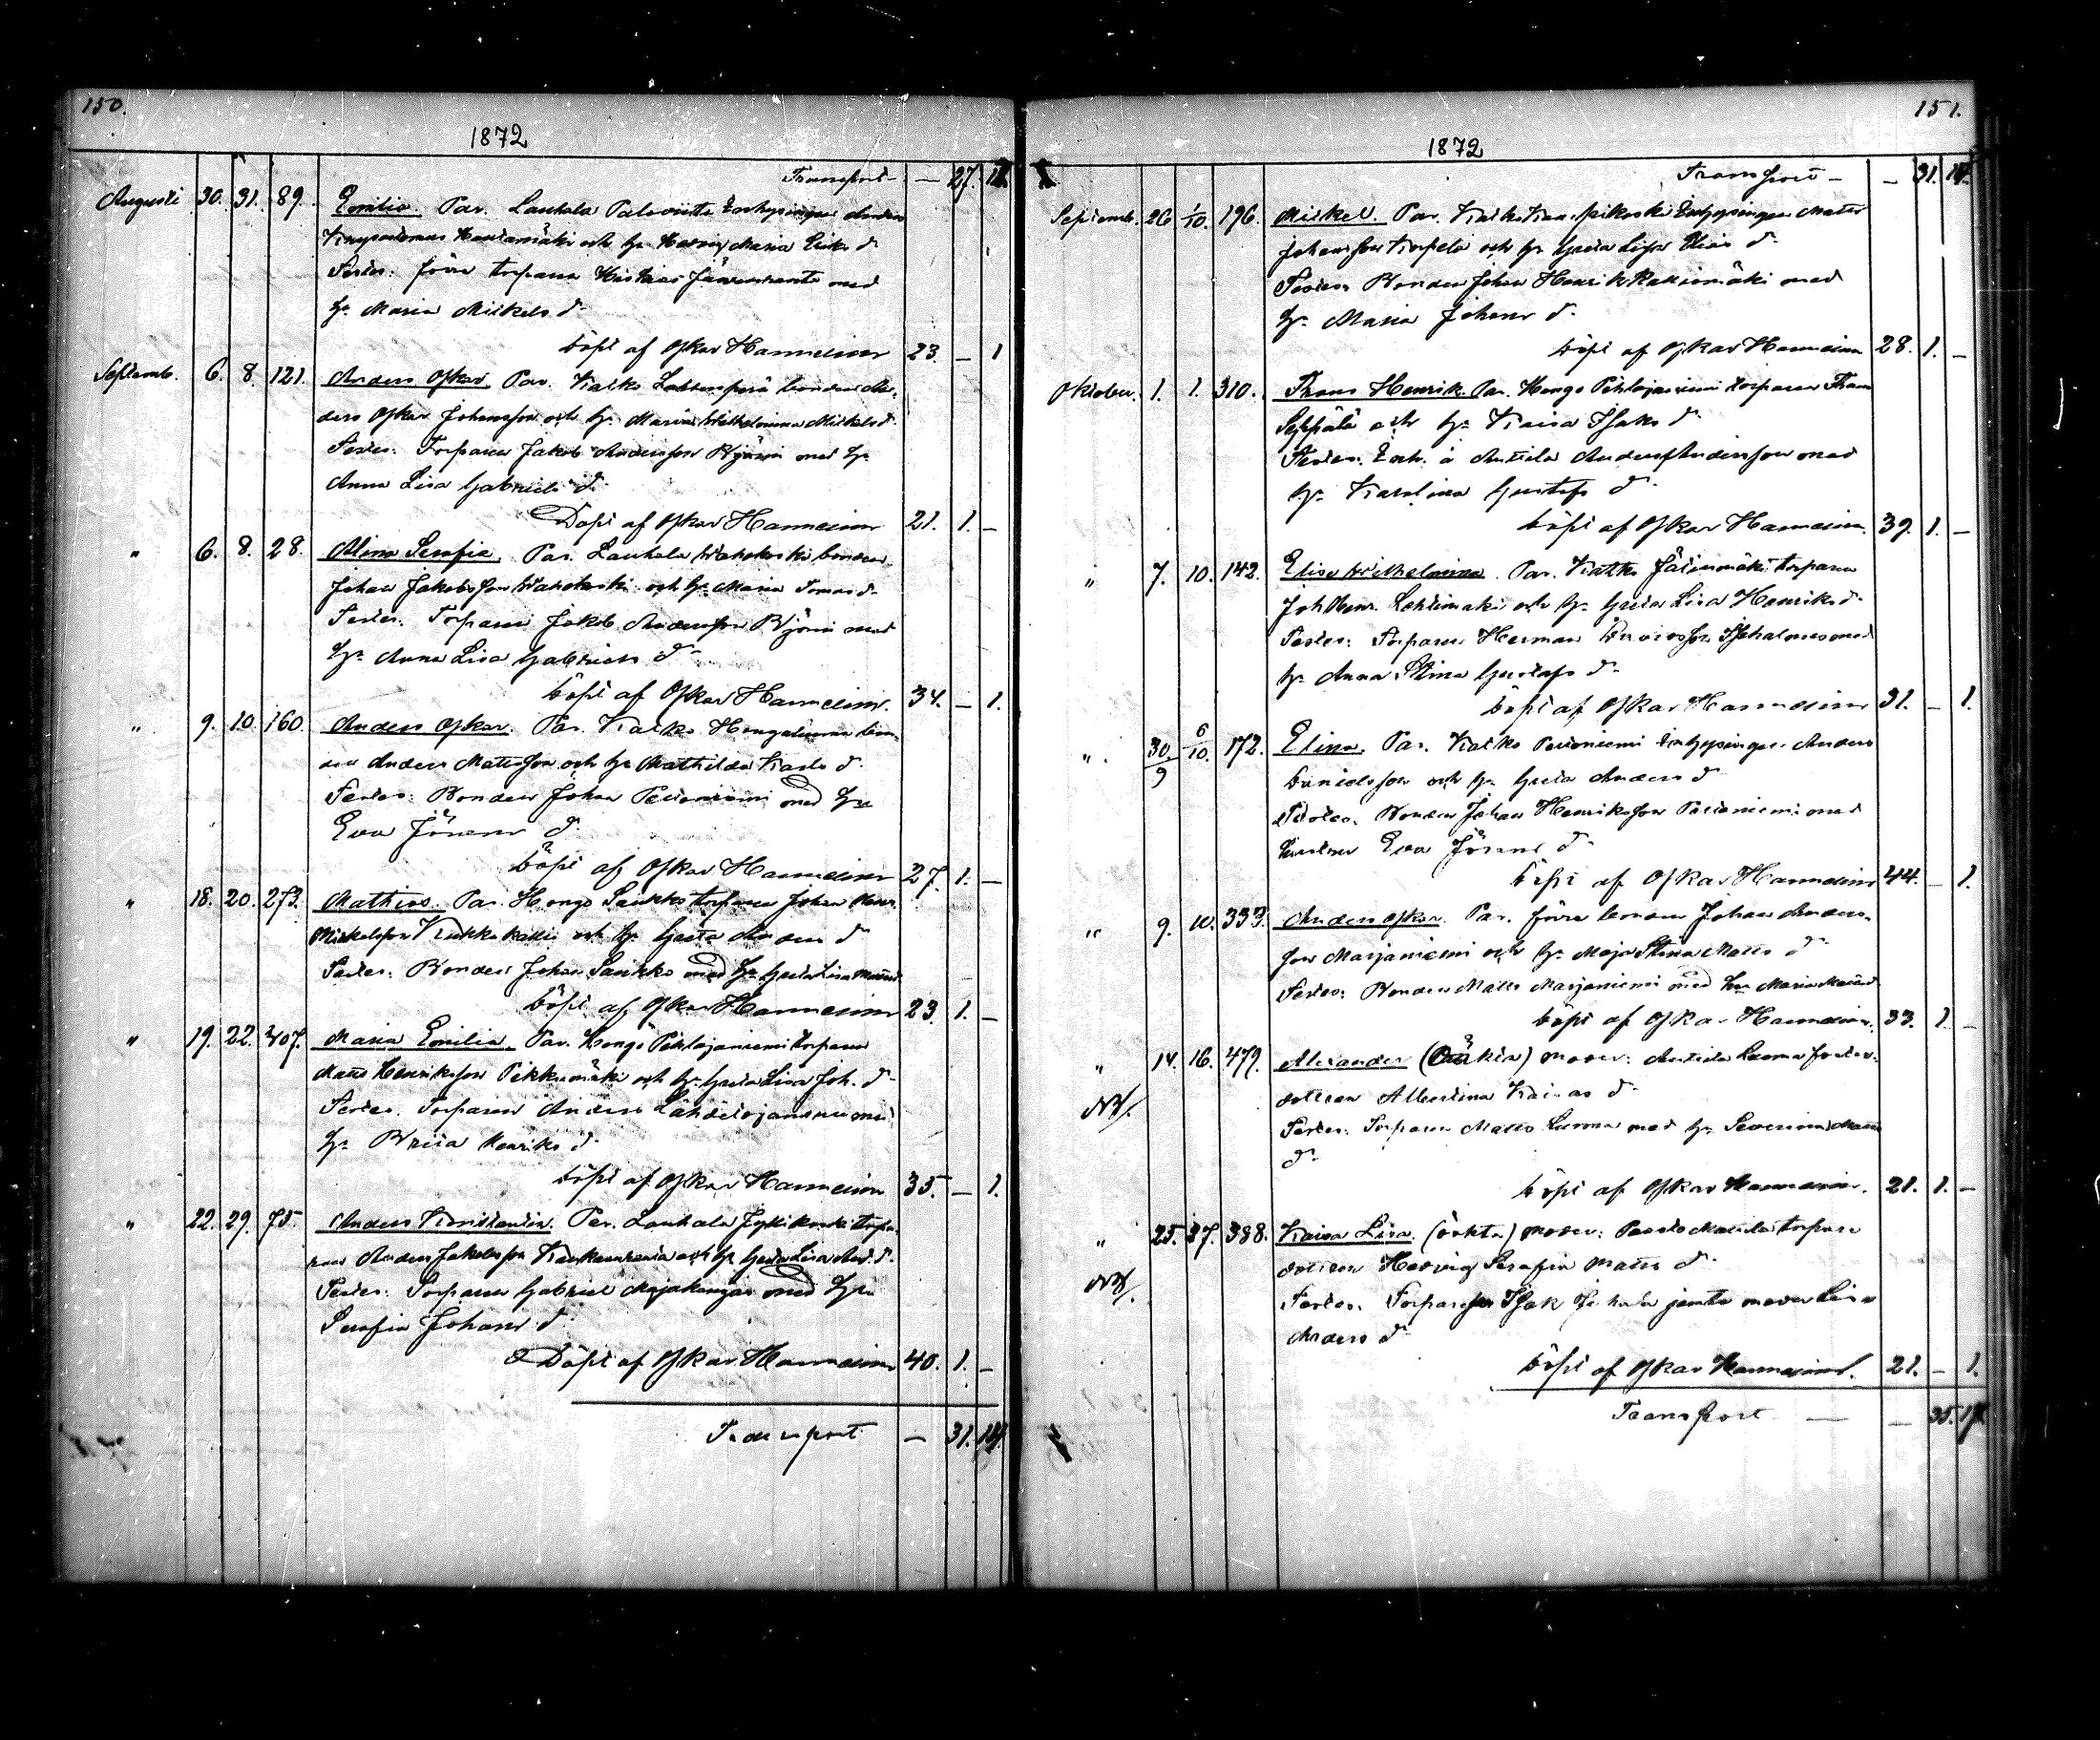 150.
1872
Transport — 27. 12.
Augusti 30. 31. 89. Emilia. Par. Lauhala Palovuitti Inhysingen Anders
Hautamäki och h. Hedvig Maria Eriks d.
Testes: förre torparen Järvenranta med
h. Maria Mickels d.
Döpt af Oskar Hannelius 23. — 1
Septemb. 6. 8. 121. Anders Oskar. Par. Katko bonden An-
ders Oskar Johansson och h. Maria Wilhelmina Mickels d.
Testes: Torparen Jakob Andersson Björni med h.
Anna Lisa Gabriels d.
Döpt af Oskar Hannelius 21. 1. —
" 6. 8. 28. Alina Serafia. Par. Lauhala Wahekoski bonden
Johan Jakobsson Wahekoski och h. Maria Tomas d.
Testes: Torparen Jakob Andersson Björni med
h. Anna Lisa Gabriels d.
Döpt af Oskar Hannelius. 34. — 1.
" 9. 10. 160. Anders Oskar. Par. Katko bon-
den Anders Mattsson och h. Mathilda Karls d.
Testes: Bonden Johan med h.
Eva Jörans d.
Döpt af Oskar Hannelius 27. 1. —
" 18. 20. 273. Mathias. Par. Hongo Saukko torparen Johan Henr.
Mickelsson och h. Greta Anders d.
Testes: Bonden Johan Saukko med h. Greta Lisa Matts d.
Döpt af Oskar Hannelius 23. 1. —
" 19. 22. 307. Maria Emilia. Par. Hongo Pihlajaniemi torparen
Matts Henriksson Pikkumäki och h. Greta Lisa Joh. d.
Testes: Torparen Anders med
h. Brita Henriks d.
Döpt af Oskar Hannelius 35. — 1.
" 22. 29. 75. Anders Konstantin. Par. Lauhala Jyllikoski torpa-
ren Anders Jakobsson och h. Greta Lisa And. d.
Testes: Torparen Gabriel Majakangas med h.
Serafia Johans d.
Döpt af Oskar Hannelius 40. 1. —
Transport — 31. 14.
151.
1872
Transport — — 31. 14.
Septemb. 26 1/10. 196. Mickel. Par. Katko Inhysingen Matts
Johansson Korpela och h. Greta Lisa Elias d.
Testes: Bonden Johan Henrik Kalliomäki med
h. Maria Johans d.
Döpt af Oskar Hannelius 28. 1. —
Oktober. 1. 1. 310. Frans Henrik. Par. Hongo Pihlajaniemi torparen Frans
Seppälä och h. Kaisa Isaks d.
Testes: Inh. å Antila Anders Andersson med
h. Karolina Gustafs d.
Döpt af Oskar Hannelius. 39. 1. —
" 7. 10. 142. Elisa Wilhelmina. Par. Katko torparen
Joh Henr. Lehtimäki och h. Greta Lisa Henriks d.
Testes: Torparen Herman Davidsson med
h. Anna Stina Gustafs d.
Döpt af Oskar Hannelius 31. — 1.
" 30/9 6/10. 172. Elina. Par. Katko Inhysingen Anders
Danielsson och h. Greta Anders d.
Testes: Bonden Johan Henriksson med
hustru Eva Jörans d.
Döpt af Oskar Hannelius 44. — 1.
" 9. 10. 333. Anders Oskar. Par. förre bonden Johan Anders-
son Marjaniemi och h. Maja Stina Matts d.
Testes: Bonden Matts Marjaniemi med h. Maria Matts d.
Döpt af Oskar Hannelius. 33. 1. —
" 14. 16. 479. Alexander (oäkta) moder: Antila Luoma
dottren Albertina Kaisas d.
NB.
Testes: Torparen Matts Luoma med h. Severina Matts
d.
Döpt af Oskar Hannelius. 21. 1. —
" 25. 27. 388. Kaisa Lisa. (oäkta) moder: torpare
dottren Hedvig Serafia Matts d.
NB.
Testes: Torparesson Isak jemte moder Lisa
Anders d.
Döpt af Oskar Hannelius. 21. — 1.
Transport — — 35. 17.